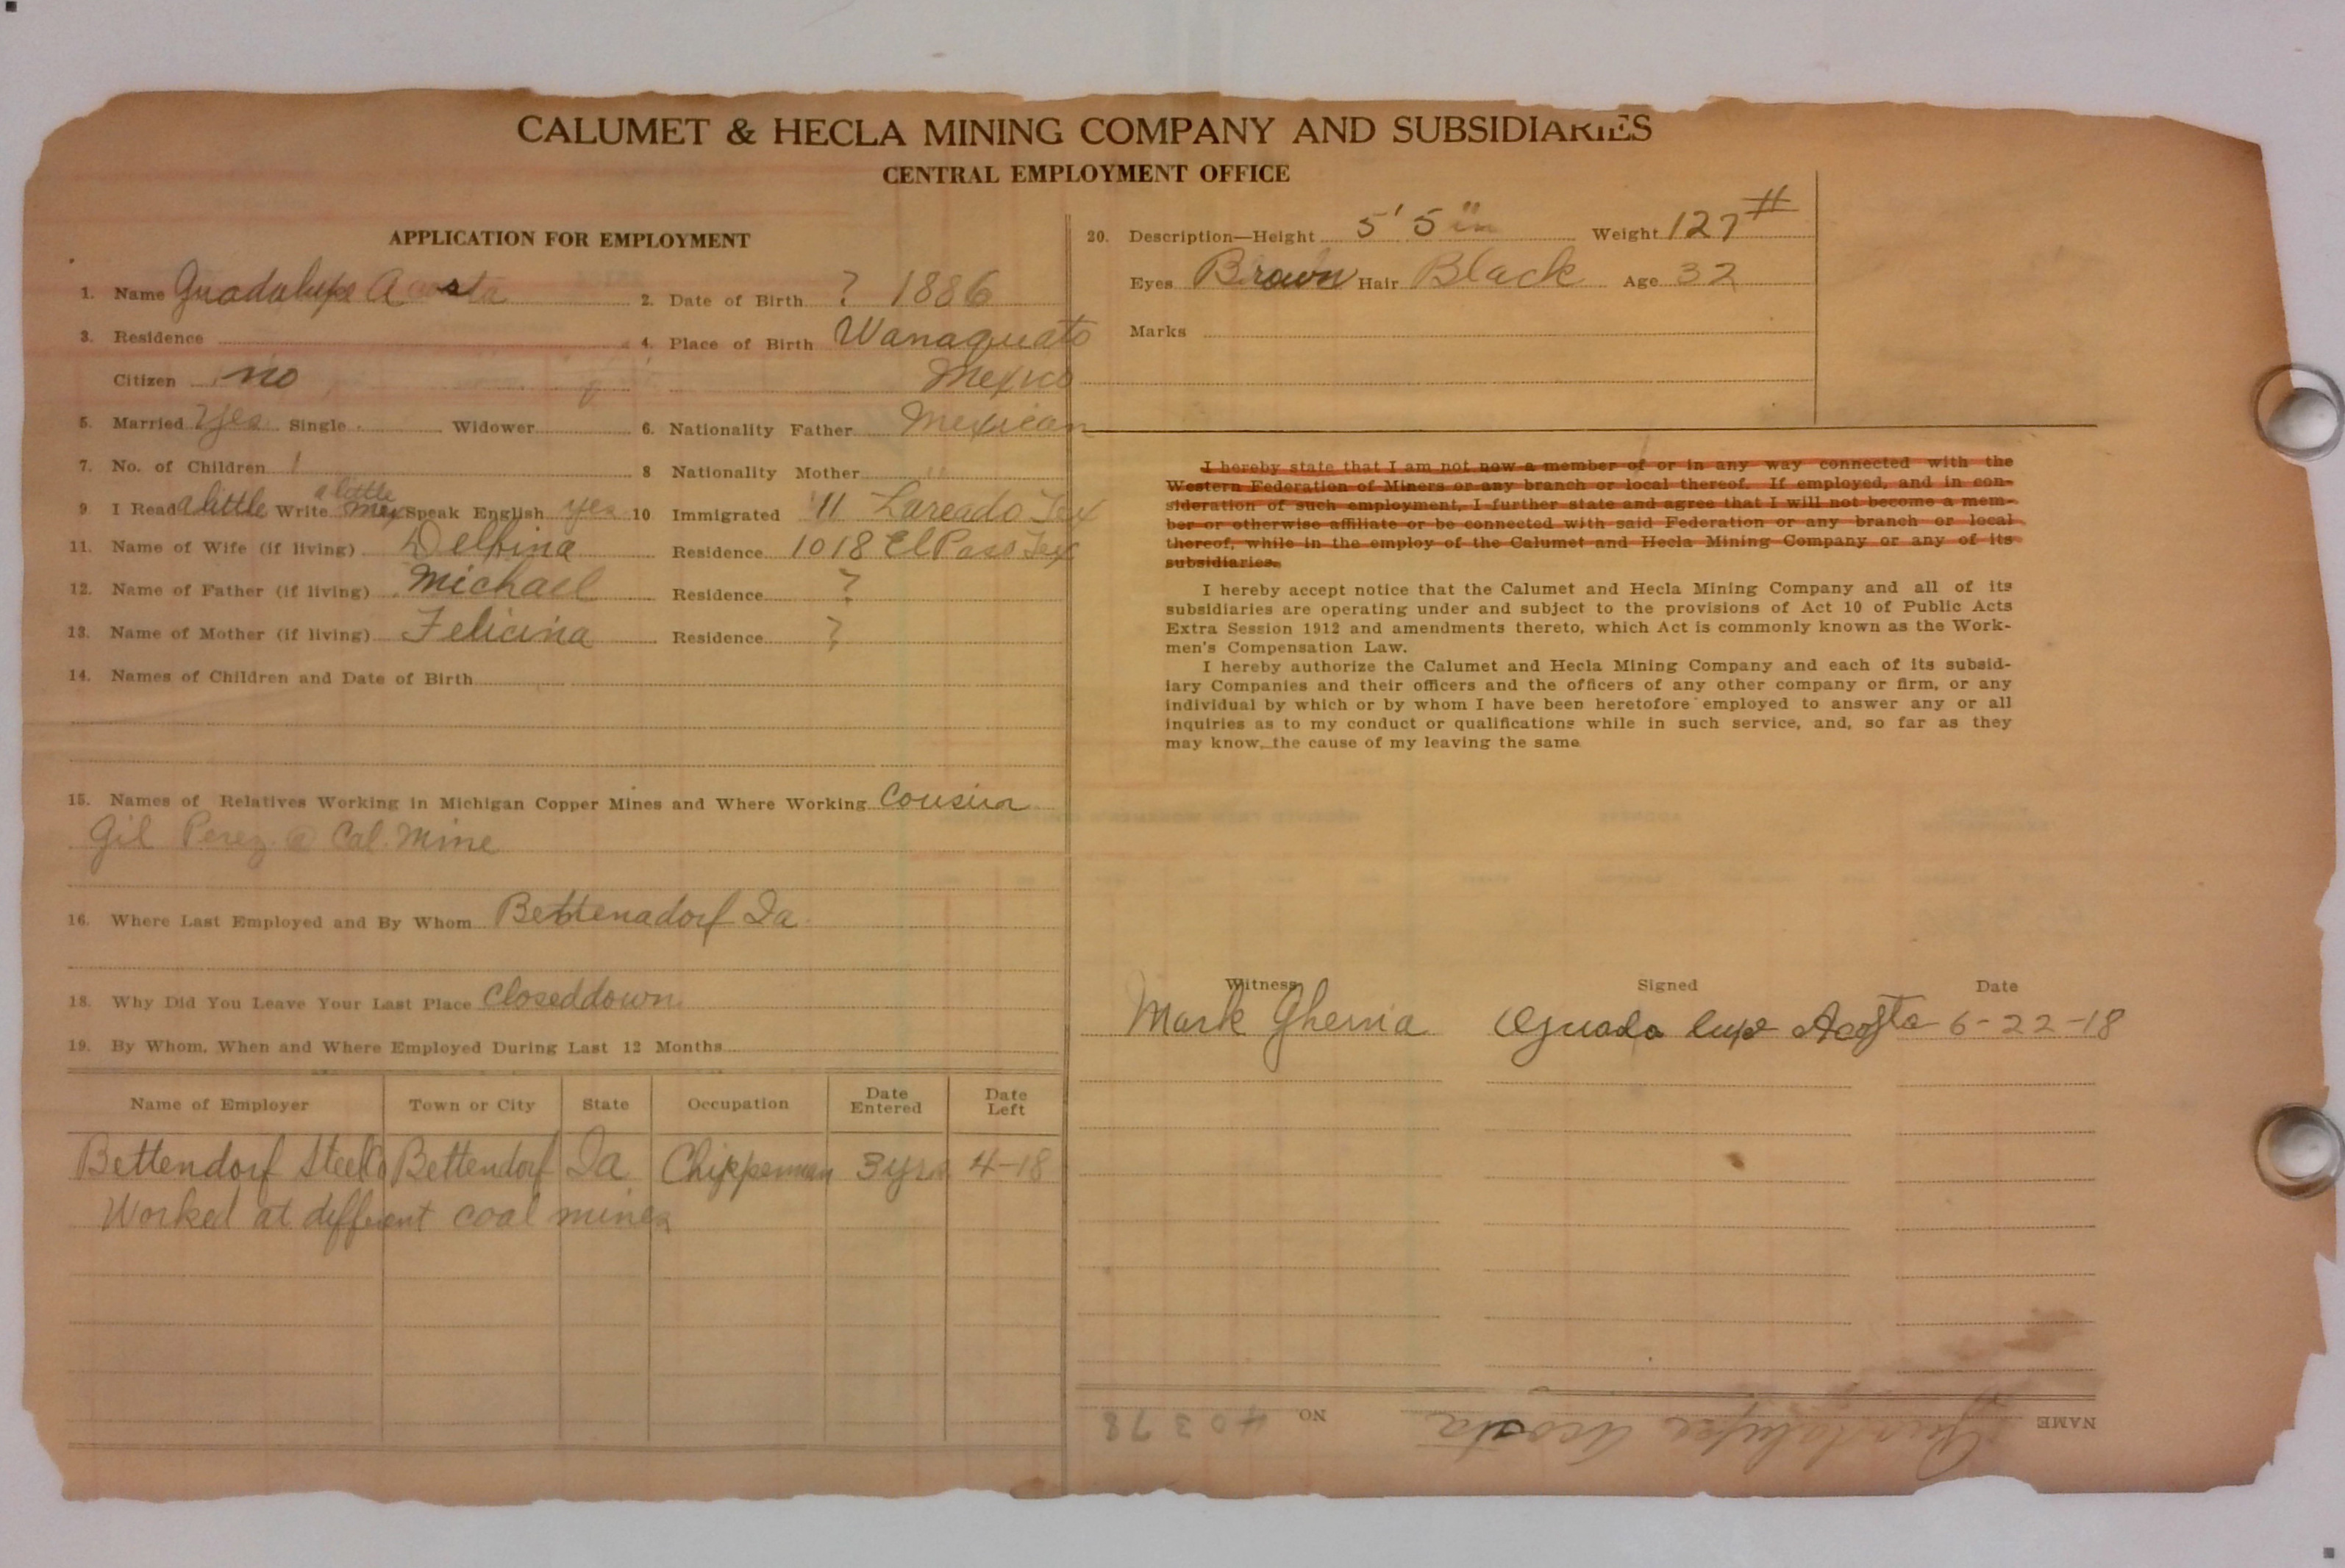 CALUMET & HECLA MINING COMPANY AND SUBSIDIARIES
CENTRAL EMPLOYMENT OFFICE
APPLICATION FOR EMPLOYMENT
1. Name Guadalupe Acosta 2. Date of Birth ? 1886
3. Residence 4. Place of Birth Wanaquato
Citizen no Mexico
5. Married Yes Single Widower 6. Nationality Father Mexican
7. No. of Children 1 8 Nationality Mother "
9 I Read a little Write a little Mex Speak English yes 10 Immigrated '11 Lareado Tex
11. Name of Wife (if living) Delfina Residence 1018 El Paso Tex
12. Name of Father (if living) Michael Residence ?
13. Name of Mother (if living) Felicina Residence ?
14. Names of Children and Date of Birth
15. Names of Relatives Working in Michigan Copper Mines and Where Working Cousin
Gil Perez @ Cal. Mine
16. Where Last Employed and By Whom Bettenadorf Ia.
18. Why Did You Leave Your Last Place Closed down
19. By Whom, When and Where Employed During Last 12 Months
Name of Employer Town or City State Occupation Date Entered Date Left
Bettendorf Steel Co Bettendorf Ia Chipperman 3 yrs 4-18
Worked at diffrent coal mines
20. Description—Height 5' 5" in Weight 127 #
Eyes Brown Hair Black Age 32
Marks
I hereby state that I am not now a member of or in any way connected with the
Western Federation of Miners or any branch or local thereof. If employed, and in con-
sideration of such employment, I further state and agree that I will not become a mem-
ber or otherwise affiliate or be connected with said Federation or any branch or local
thereof, while in the employ of the Calumet and Hecla Mining Company or any of its
subsidiaries.
I hereby accept notice that the Calumet and Hecla Mining Company and all of its
subsidiaries are operating under and subject to the provisions of Act 10 of Public Acts
Extra Session 1912 and amendments thereto, which Act is commonly known as the Work-
men's Compensation Law.
I hereby authorize the Calumet and Hecla Mining Company and each of its subsid-
iary Companies and their officers and the officers of any other company or firm, or any
individual by which or by whom I have been heretofore employed to answer any or all
inquiries as to my conduct or qualifications while in such service, and, so far as they
may know, the cause of my leaving the same
Witness Signed Date
Mark Ghenia Guada lupe Acosta 6-22-18
NAME Guadalupe Acosta NO 40378